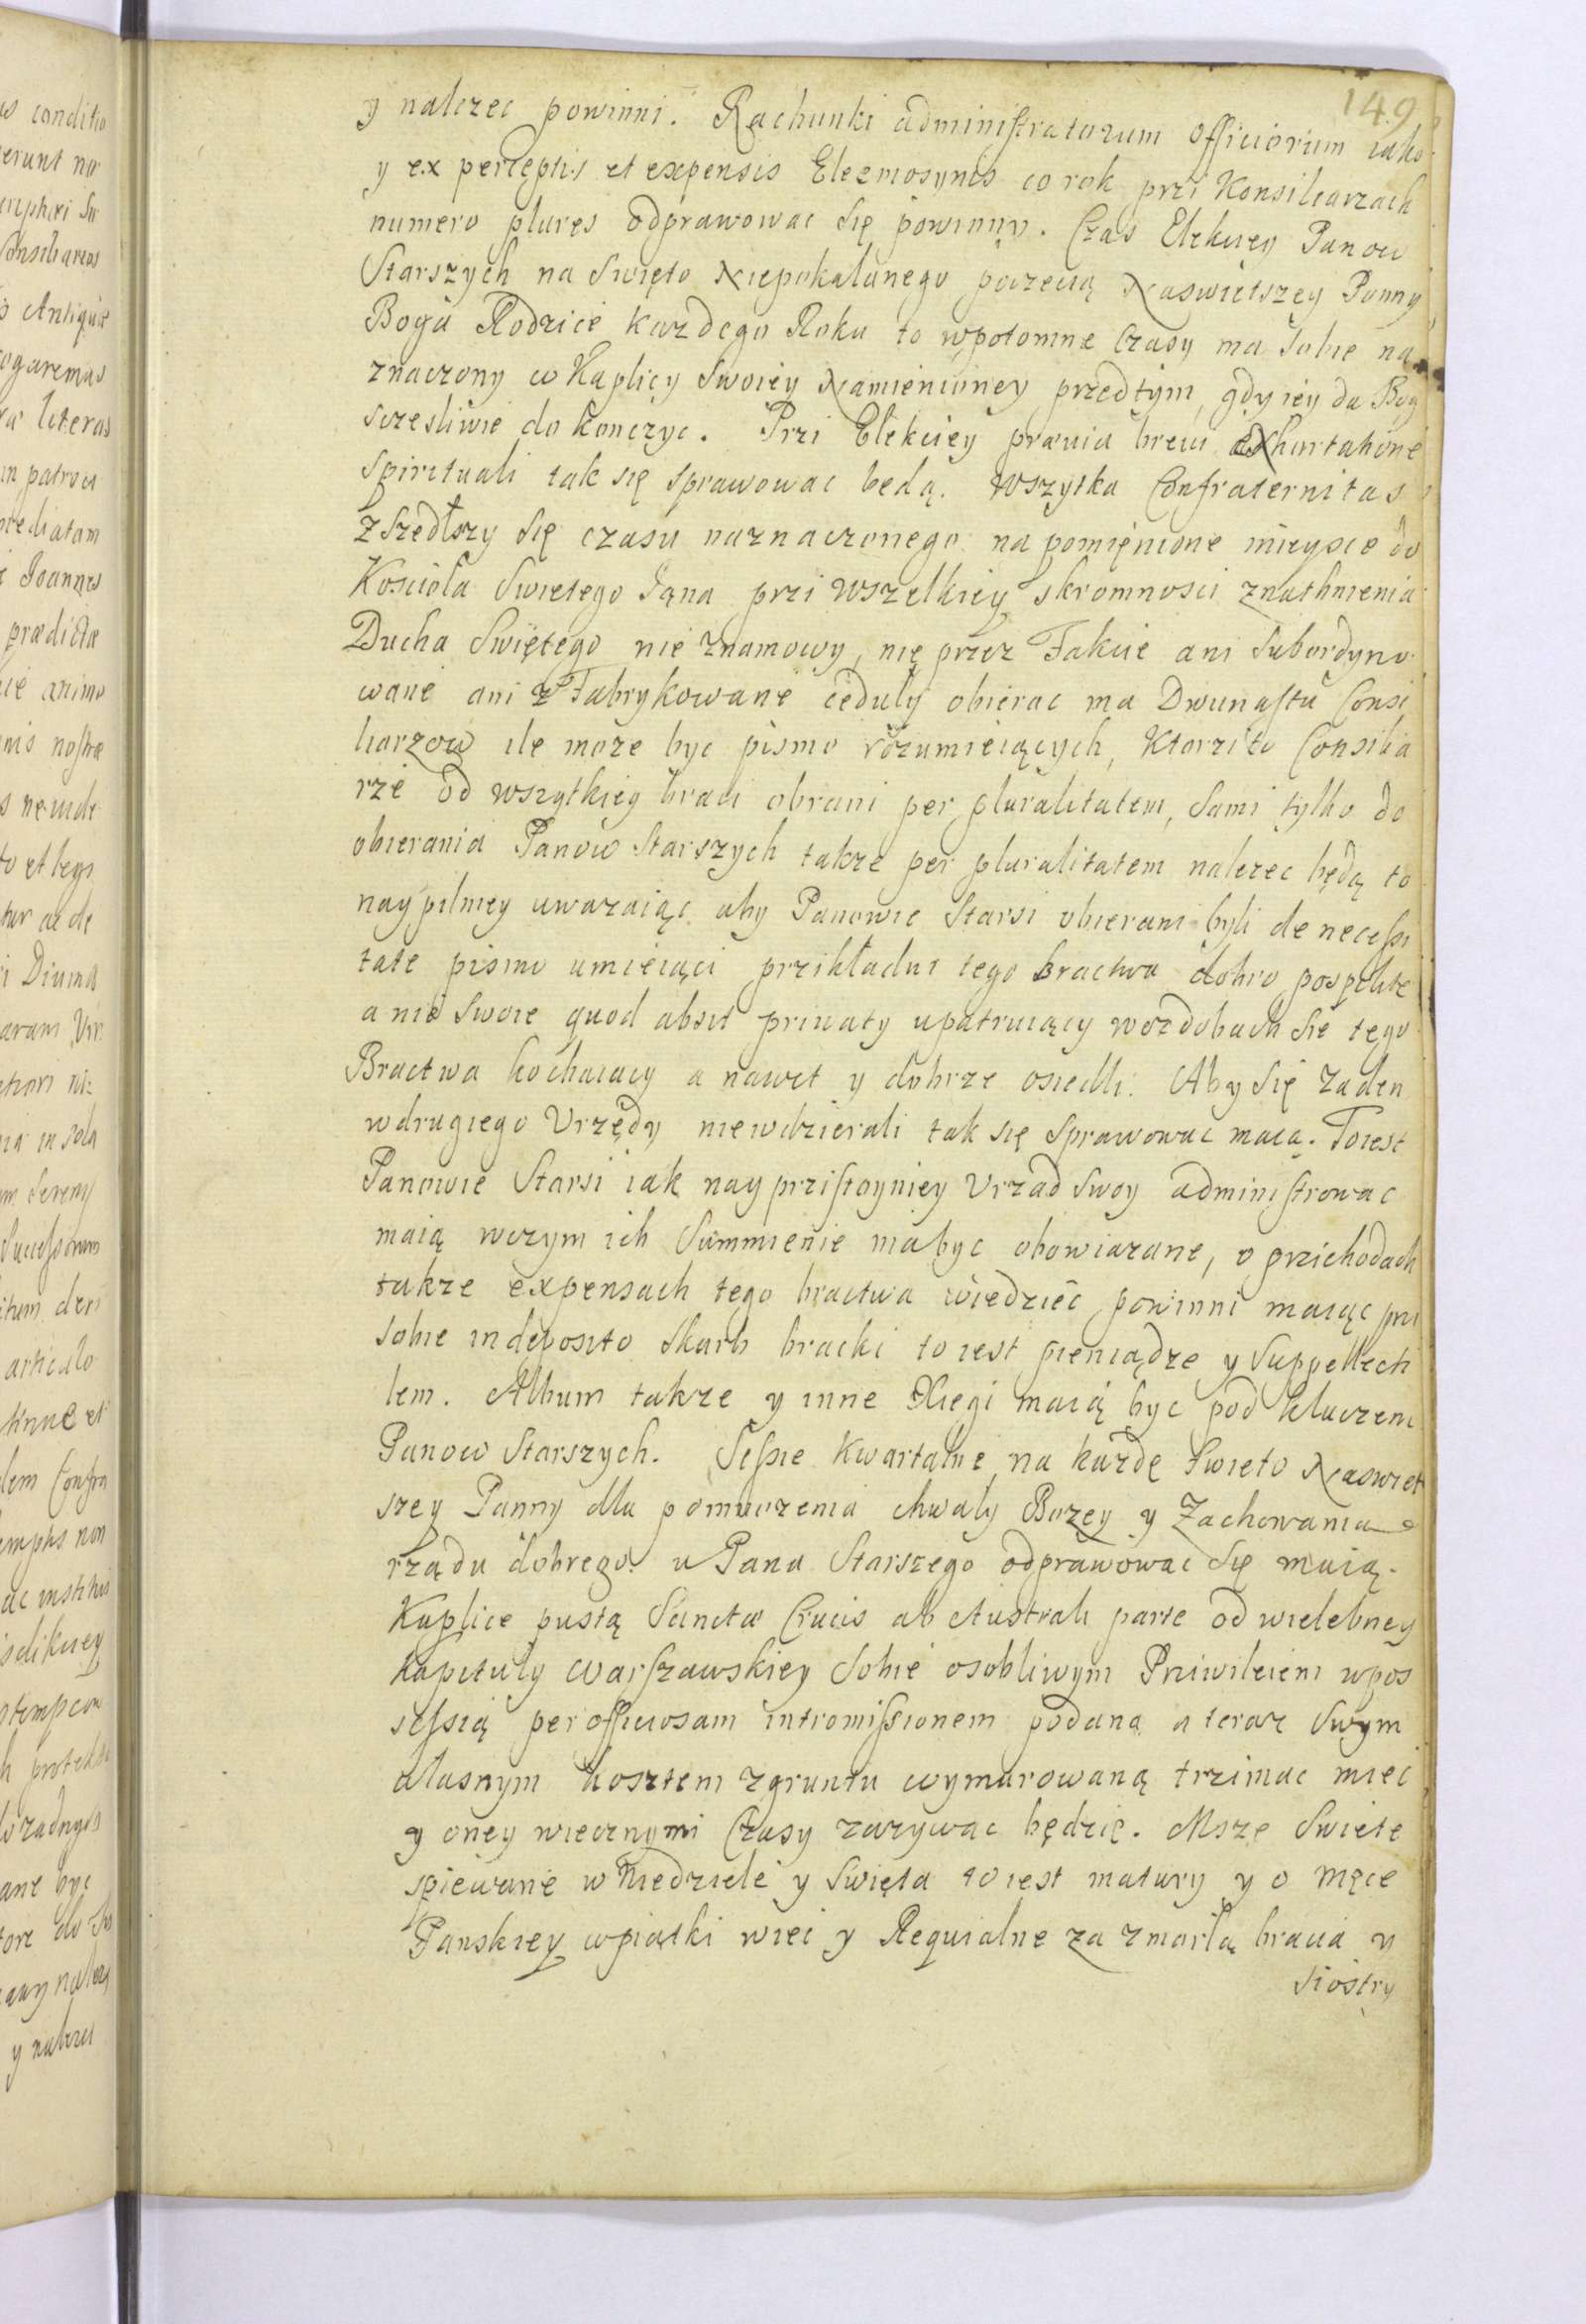 149
y nalezec powinni. Rachunki administratorum officiorum iako
y ex perceptis et expensis Eleemosynis co rok przi Konsiliarzach
numero plures odprawowac się powinny. Czas Elekcyey Panow
Starszych na Swięto Niepokalanego poczecią Naswietszey Panny
Boga Rodzice kazdego Roku to wpotomne Czasy ma sobie na
znaczony w Kaplicy Swoiey Namienioney przedtym, gdy iey da Bog
sczesliwie do konczyc. Przi Elekciey prævia brevi exhortatione
Spirituali tak się sprawowac bedą. Wszytka Confraternitas
Zszedłszy się czasu naznaczonego na pomięnione mieysce do
Kosciola Swietego Jana przi wszelkiey skromnosci znathnienia
Ducha Swiętego nie znamowy, nie przez Fakcie ani Subordyno
wane ani z Fabrykowane ceduly obierac ma Dwunastu Consi
liarzow ile moze byc pismo rozumieiących, Ktorzi to Consilia
rze od wszytkiey braci obrani per pluralitatem, Sami tylko do
obierania Panow Starszych takze per pluralitatem nalezec będą to
naypilniey uwazaiąc aby Panowie Starsi obierani byli de necessi
tate pismo umieiąci przikładni tego bractwa dobro pospolite
a nie Swoie quod absit prinaty upatruiący wozdobach sie tego
Bractwa kochaiacy a nawet y dobrze osiedli. Aby się zaden
wdrugiego Vrzędy niewdzierali tak się Sprawowac maią. Toiest
Panowie Starsi iak nayprzistoyniey Vrzad swoy administrowac
maią wczym ich Summienie mabyc obowiazane, o przichodach
takze expensach tego bractwa wiedziec powinni maiąc pri
sobie in deposito skarb bracki to iest pieniądze y Suppellecti
lem. Album takze y inne Xiegi maią byc pod kluczem
Panow Starszych. Sessie Kwartalne na kazde Swieto Naswiet
szey Panny dla pomnozenia chwaly Bozey y Zachowania
rządu dobrego u Pana Starszego odprawowac się maią.
Kaplice pustą Sanctæ Crucis ab Australi parte od wielebney
kapituly Warszawskiey Sobie osobliwym Priwileiem wpos
sessią per officiosam intromissionem podaną a teraz Swym
własnym kosztem zgruntu wymurowaną trzimac miec
y oney wiecznymi Czasy zazywac będzie. Msze Swiete
spiewane w Niedziele y Swięta to iest matury y o Męce
Panskiey wpiątki wiec y Requialne za zmarlą bracia y
Siostry